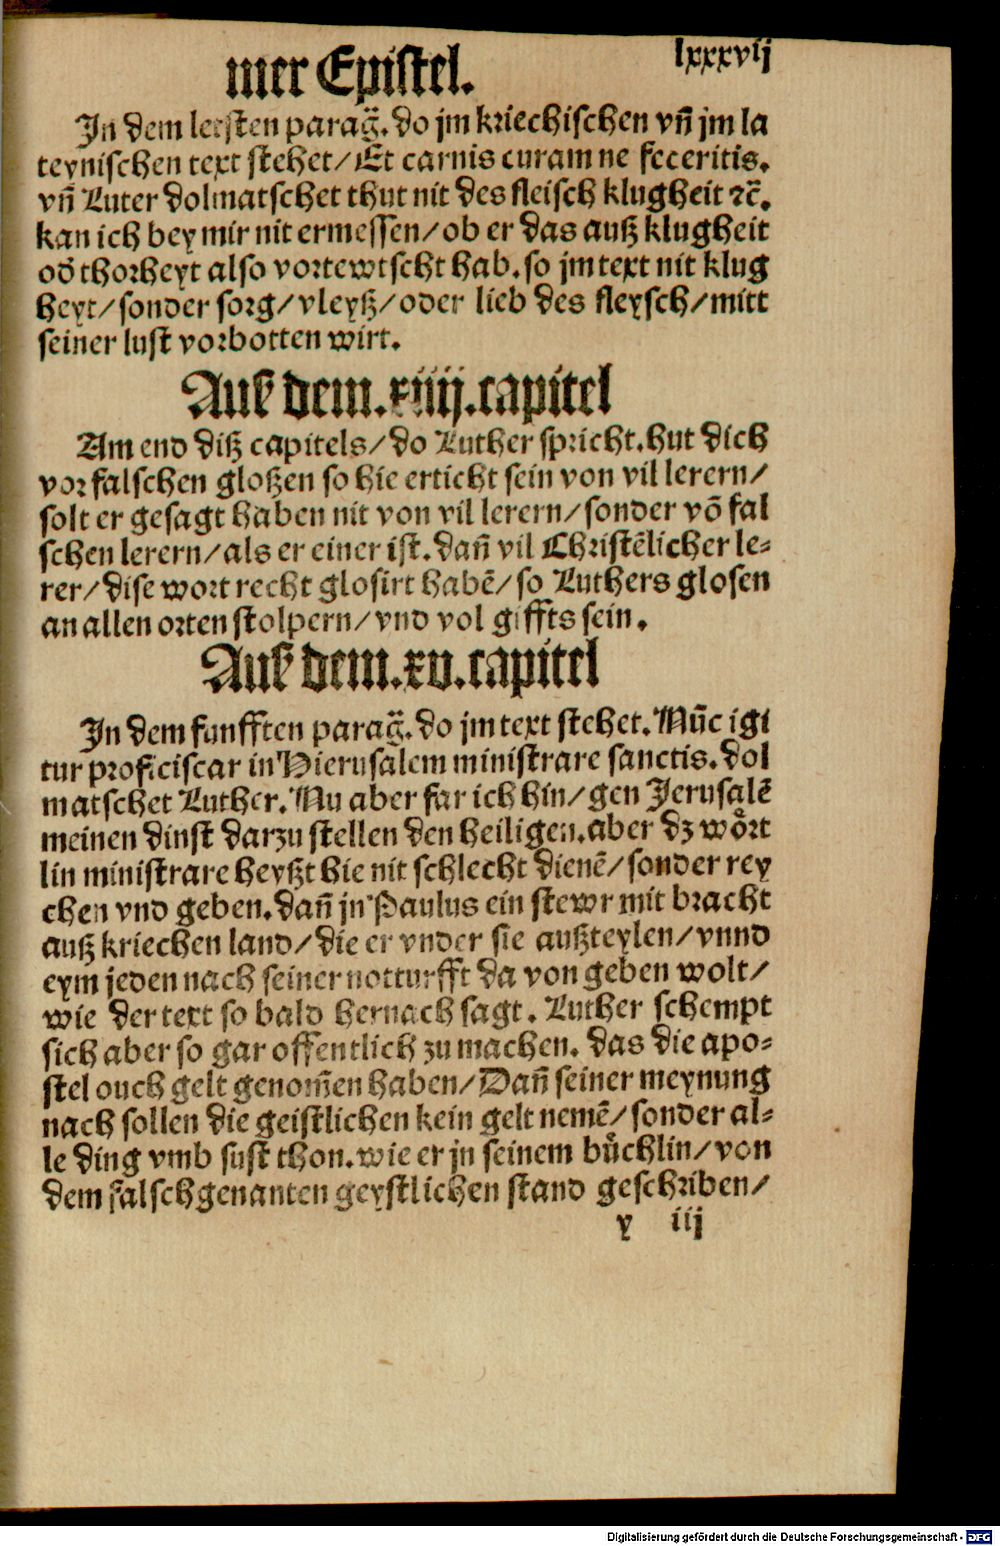 mer Epistel.
lxxxvij
In dem letsten parag̃. do jm kriechischen vñ jm la
teynischen text stehet/ Et carnis curam ne feceritis.
vñ Luter dolmatschet thut nit des fleisch klugheit ⁊c̃.
kan ich bey mir nit ermessen/ ob er das auß klugheit
od̄ thorheyt also vortewtscht hab. so jm text nit klug
heyt/ sonder sorg/ vleyß/ oder lieb des fleysch/ mitt
seiner lust vorbotten wirt.
Auß dem.xiiij.capitel
Am end diß capitels/ do Luther spricht. hut dich
vor falschen gloßen so hie erticht sein von vil lerern/
solt er gesagt haben nit von vil lerern/ sonder võ fal
schen lerern/ als er einer ist. dañ vil Christẽlicher le-
rer/ dise wort recht glosirt habẽ/ so Luthers glosen
an allen orten stolpern/ vnd vol giffts sein.
Auß dem.xv.capitel
In dem funfften parag̃. do jm text stehet. Nũc igi
tur proficiscar in Hierusalem ministrare sanctis. dol
matschet Luther. Nu aber far ich hin/ gen Jerusalẽ
meinen dinst darzu stellen den heiligen. aber dz woͤrt
lin ministrare heyßt hie nit schlecht dienẽ/ sonder rey
chen vnd geben. dañ jn Paulus ein stewr mit bracht
auß kriechen land/ die er vnder sie außteylen/ vnnd
eym jeden nach seiner notturfft da von geben wolt/
wie der text so bald hernach sagt. Luther schempt
sich aber so gar offentlich zu machen. das die apo-
stel ouch gelt genom̃en haben/ Dañ seiner meynung
nach sollen die geistlichen kein gelt nemẽ/ sonder al-
le ding vmb sust thon. wie er jn seinem buͤchlin/ von
dem falschgenanten geystlichen stand geschriben/
y iij
Digitalisierung gefördert durch die Deutsche Forschungsgemeinschaft - DFG